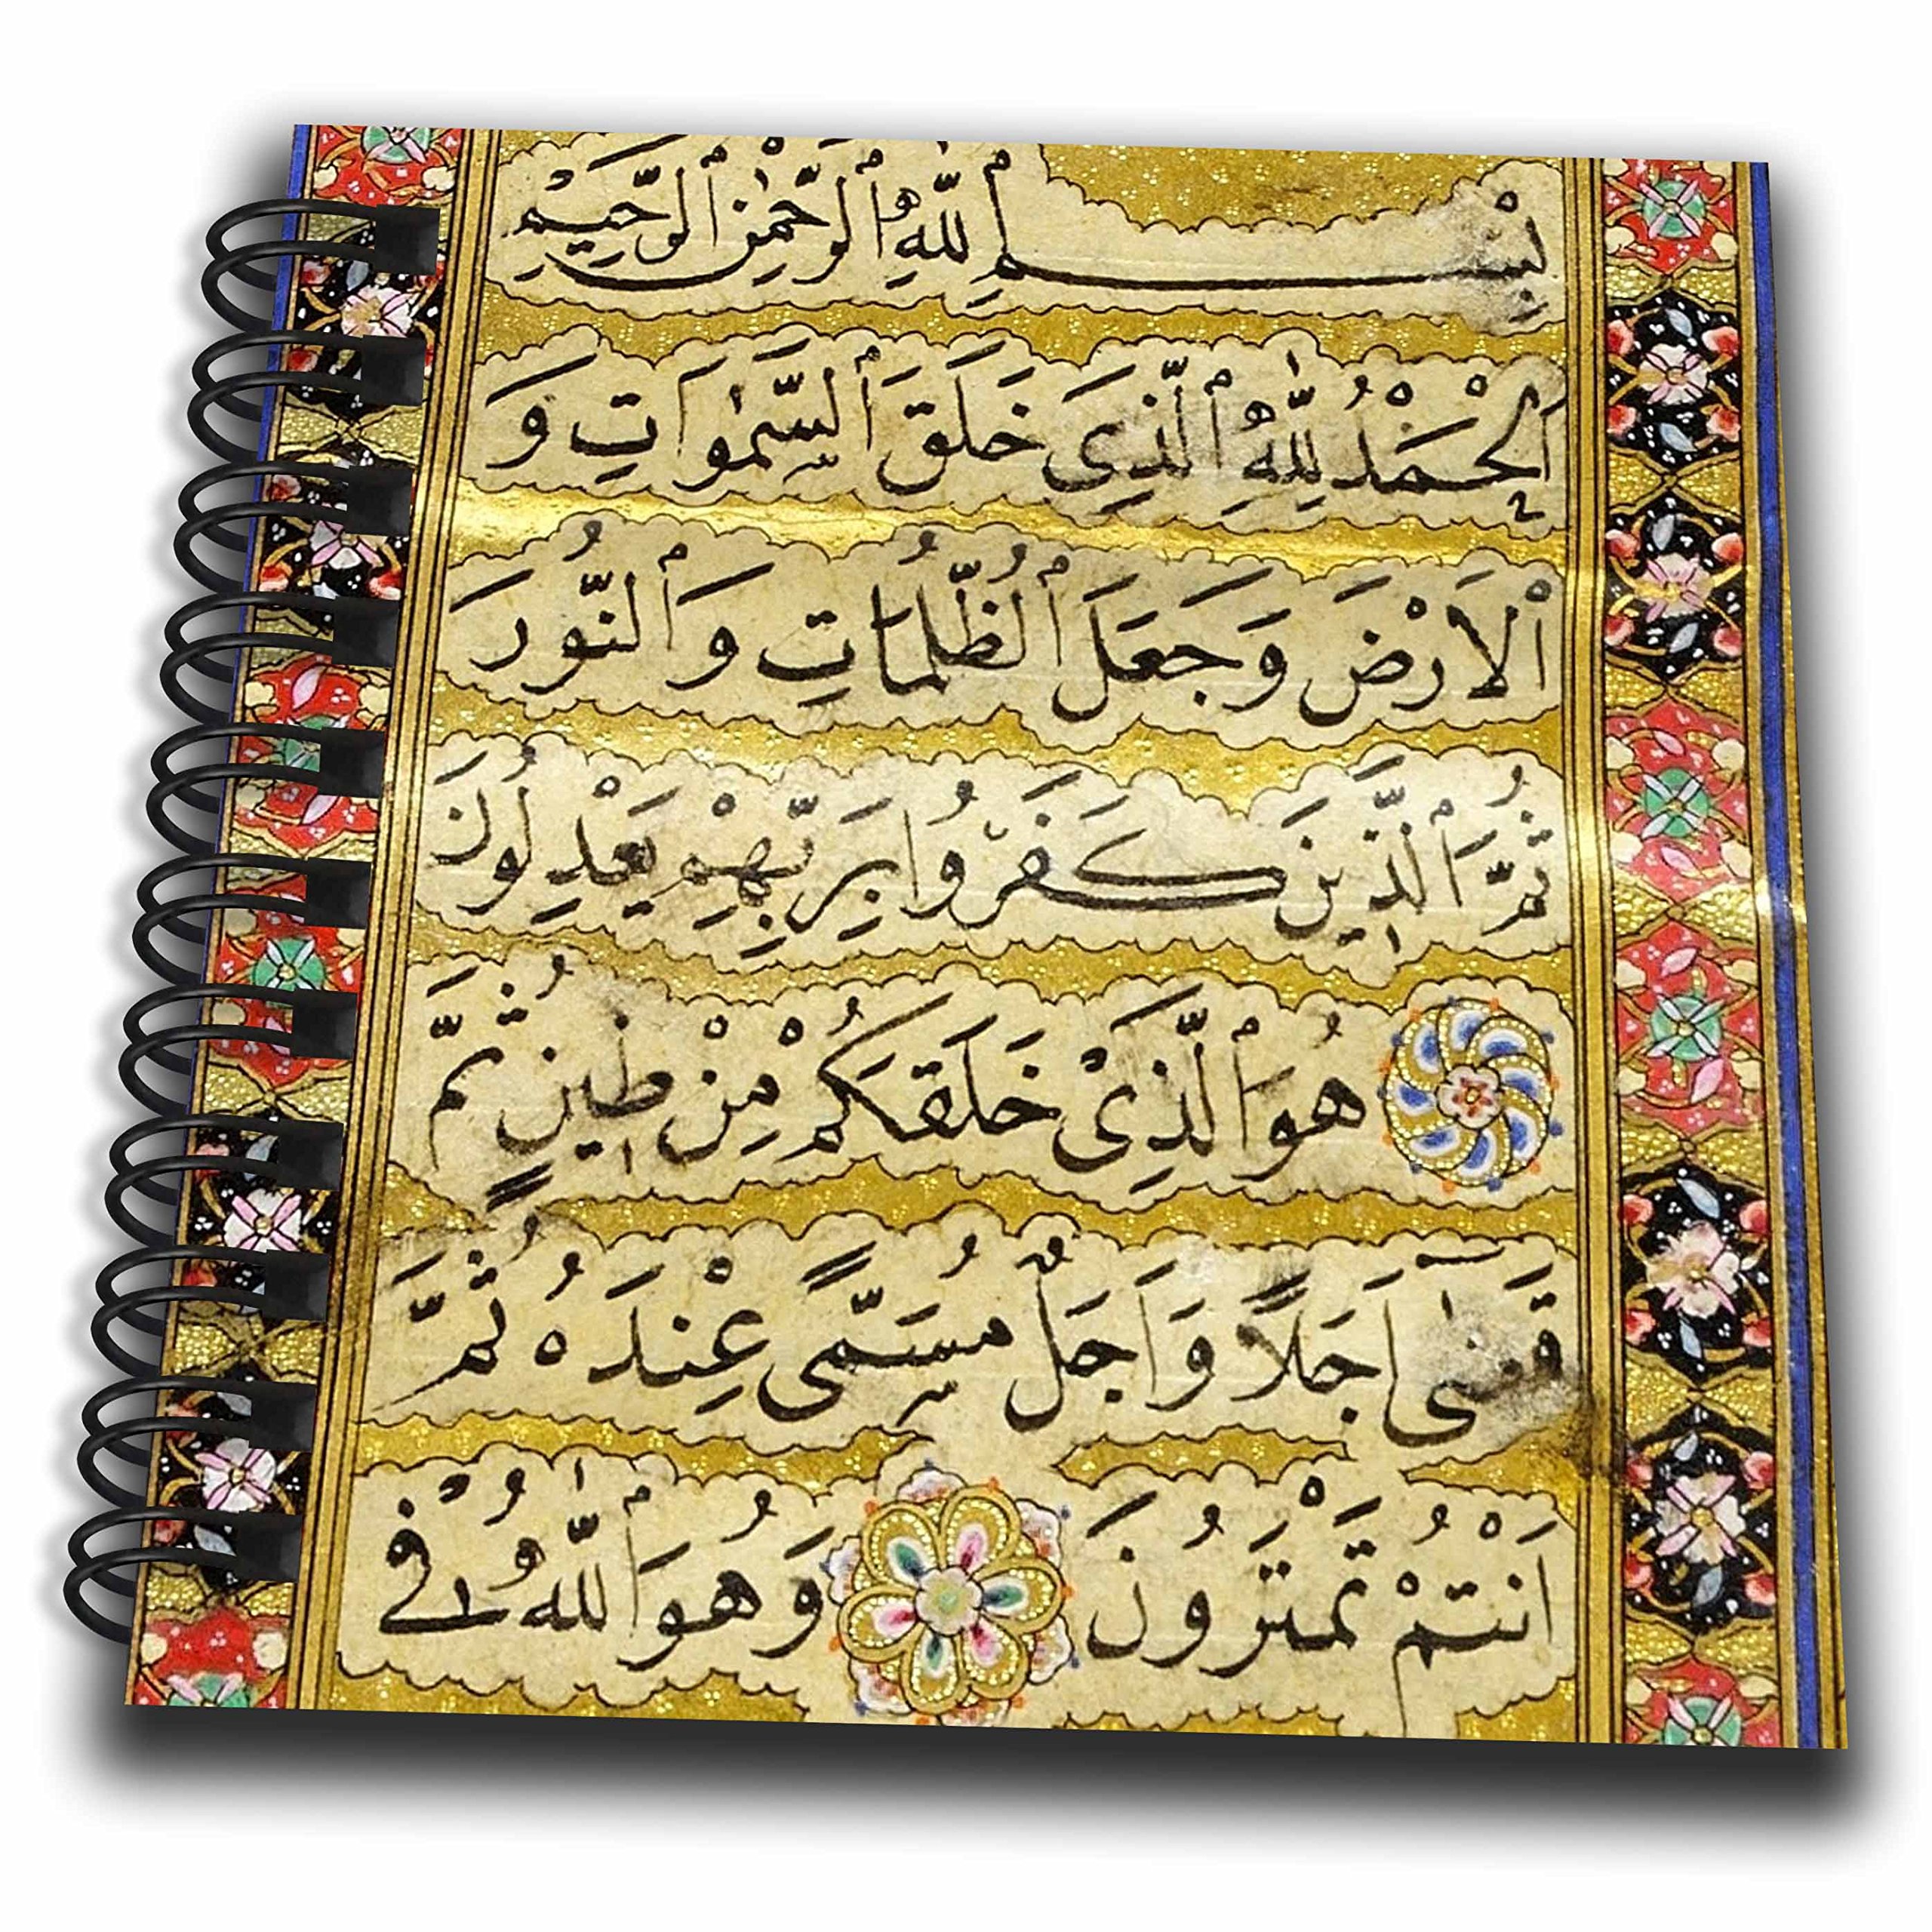 بِسْمِ ٱللّٰهِ ٱلرَّحْمٰنِ ٱلرَّحِيْمِ
اَلْحَمْدُ لِلّٰهِ ٱلَّذِى خَلَقَ ٱلسَّمٰوَاتِ وَ
ٱلْاَرْضَ وَجَعَلَ ٱلظُّلُمَاتِ وَٱلنُّورَ
ثُمَّ ٱلَّذِينَ كَفَرُوا بِرَبِّهِمْ يَعْدِلُونَ
هُوَ ٱلَّذِىْ خَلَقَكُمْ مِنْ طِينٍ ثُمَّ
قَضٰىٓ اَجَلًا وَاَجَلٌ مُسَمًّى عِنْدَهُ ثُمَّ
اَنْتُمْ تَمْتَرُونَ وَهُوَ ٱللّٰهُ فِى